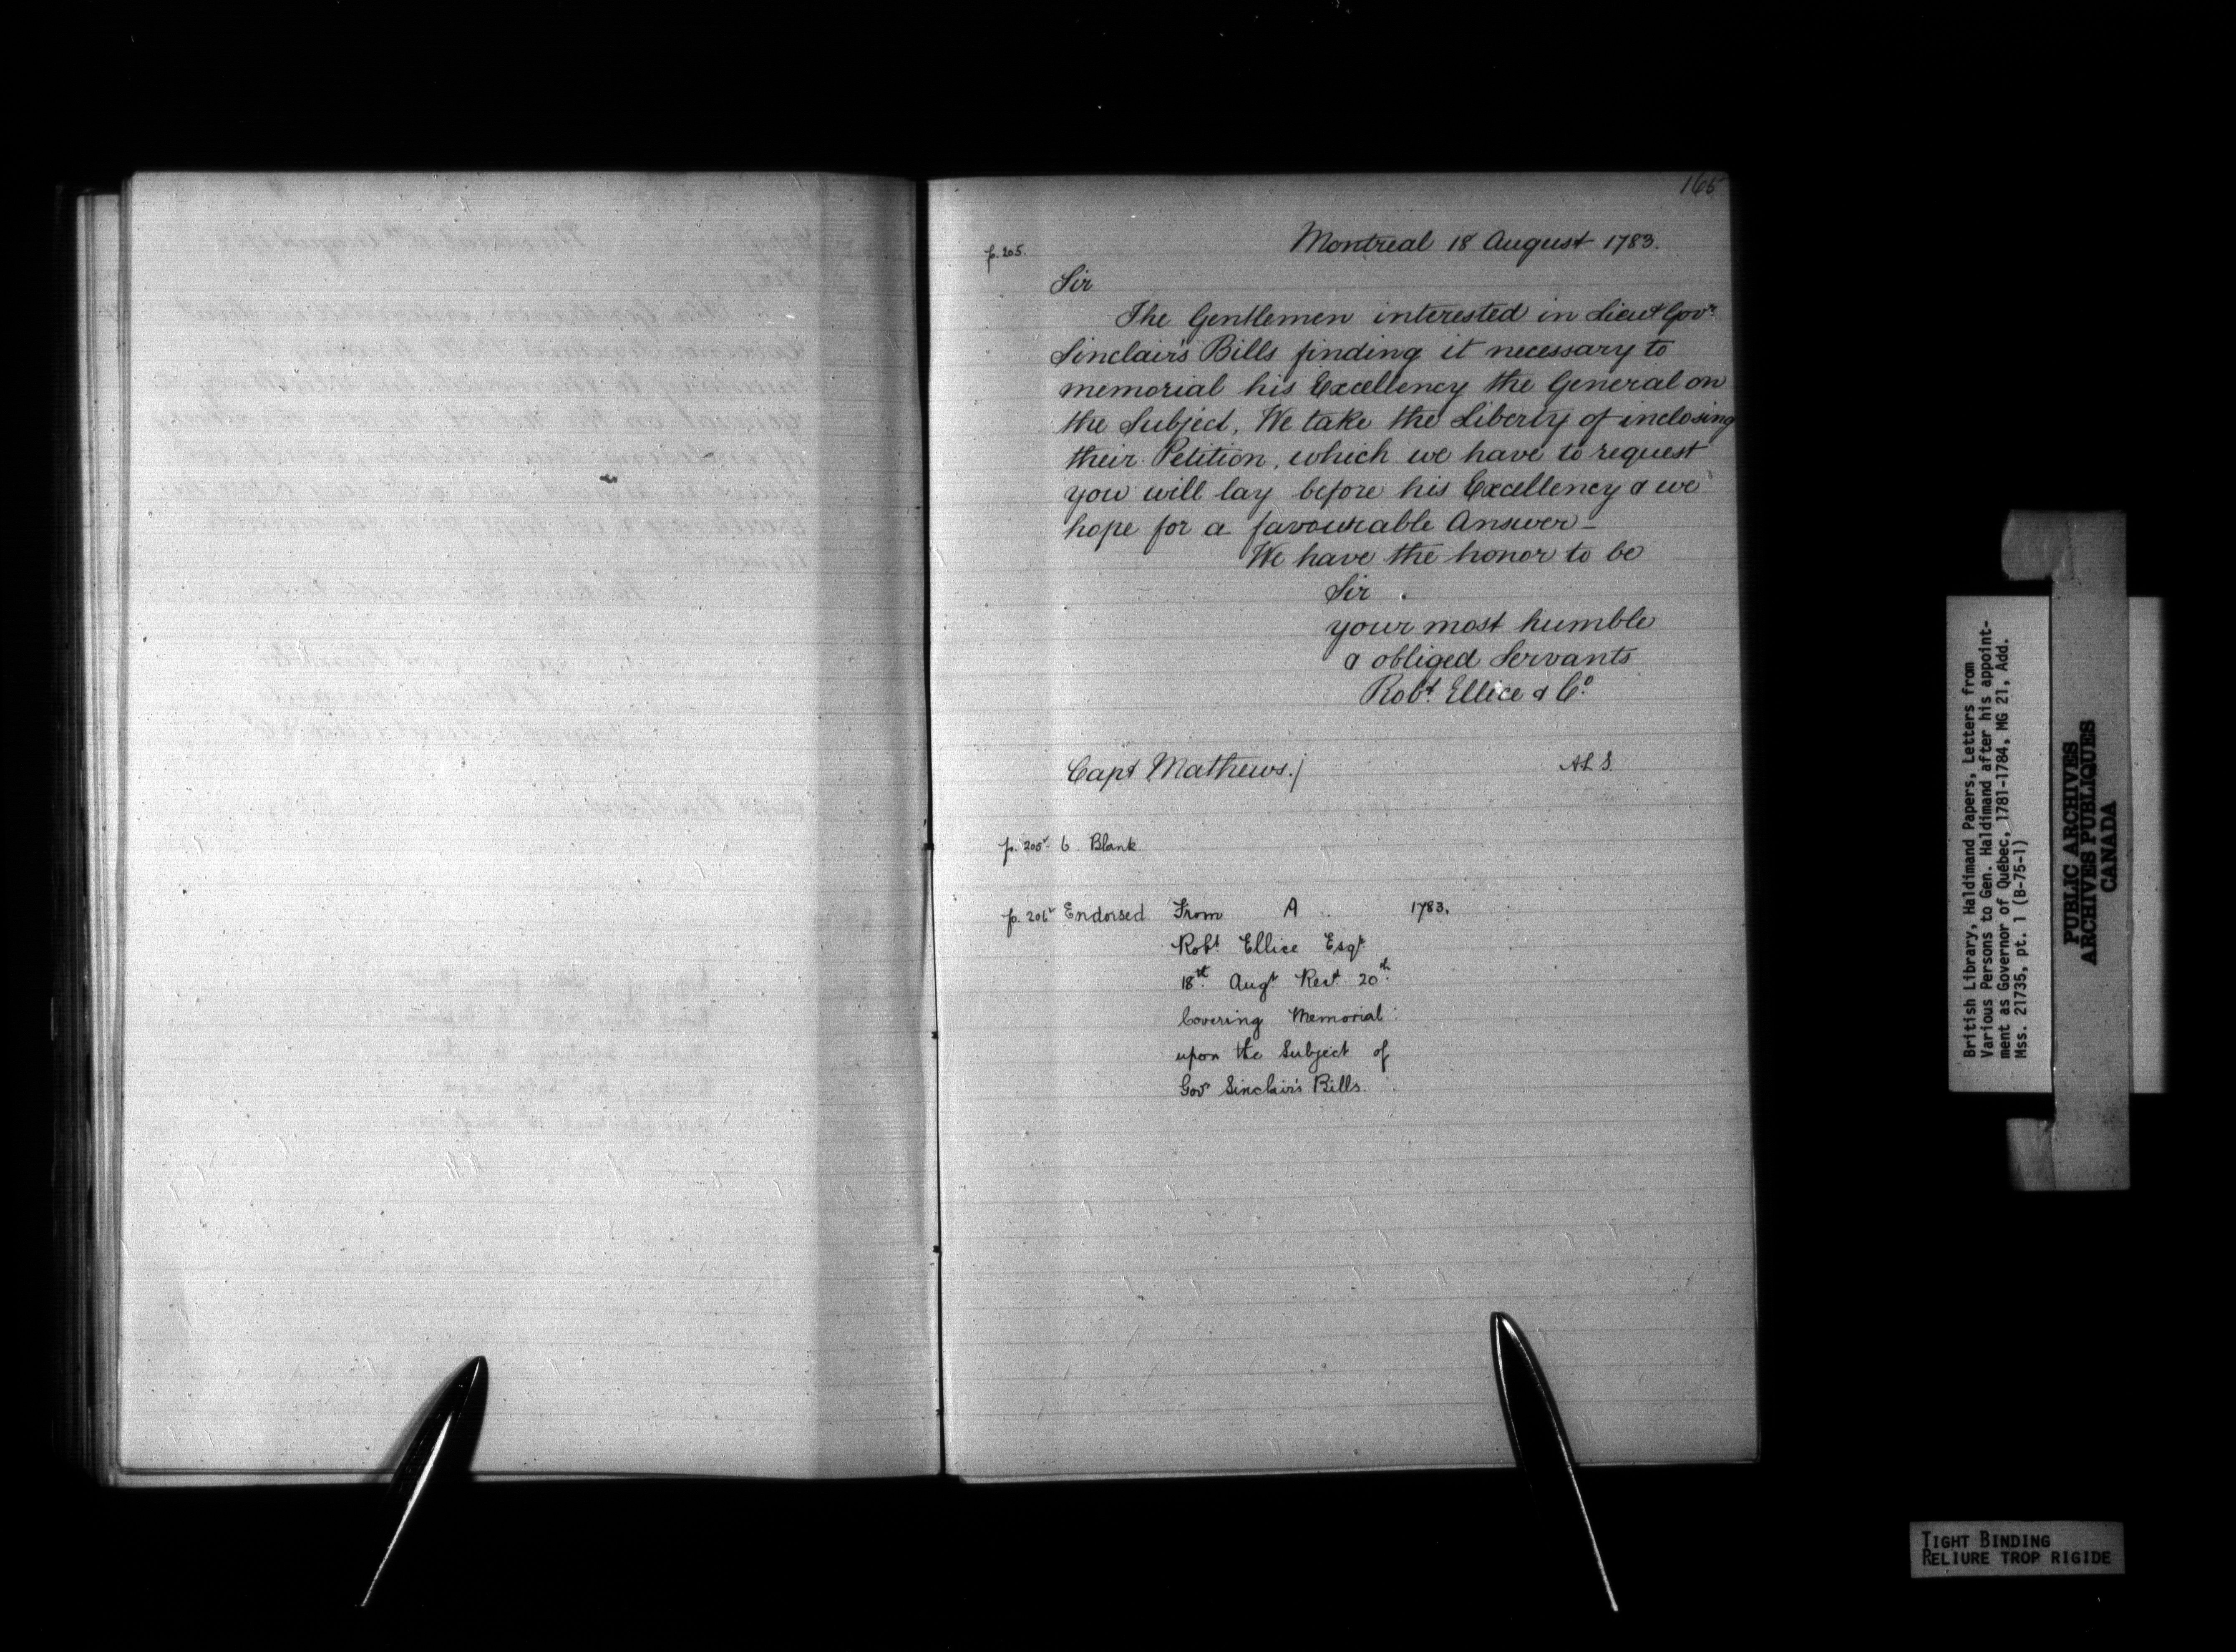 165
p. 205.
Montreal 18 August 1783.
Sir
The Gentlemen interested in Lieut Govr.
Sinclair's Bills finding it necessary to
memorial his Excellency the General on
the Subject, We take the Liberty of inclosing
their Petition, which we have to request
you will lay before his Excellency & we
hope for a favourable Answer –
We have the honor to be
Sir
your most humble
& obliged Servants
Robt. Ellice & Co.
Capt Mathews./
A L S.
p. 205v b. Blank
p. 206v Endorsed From A 1783.
Robt. Ellice Esqr.
18th. Augt Recd. 20th.
Covering Memorial
upon the Subject of
Govr Sinclair's Bills.
British Library, Haldimand Papers, Letters from
Various Persons to Gen. Haldimand after his appoint-
ment as Governor of Québec, 1781-1784, MG 21, Add.
Mss. 21735, pt. 1 (B-75-1)
PUBLIC ARCHIVES
ARCHIVES PUBLIQUES
CANADA
TIGHT BINDING
RELIURE TROP RIGIDE